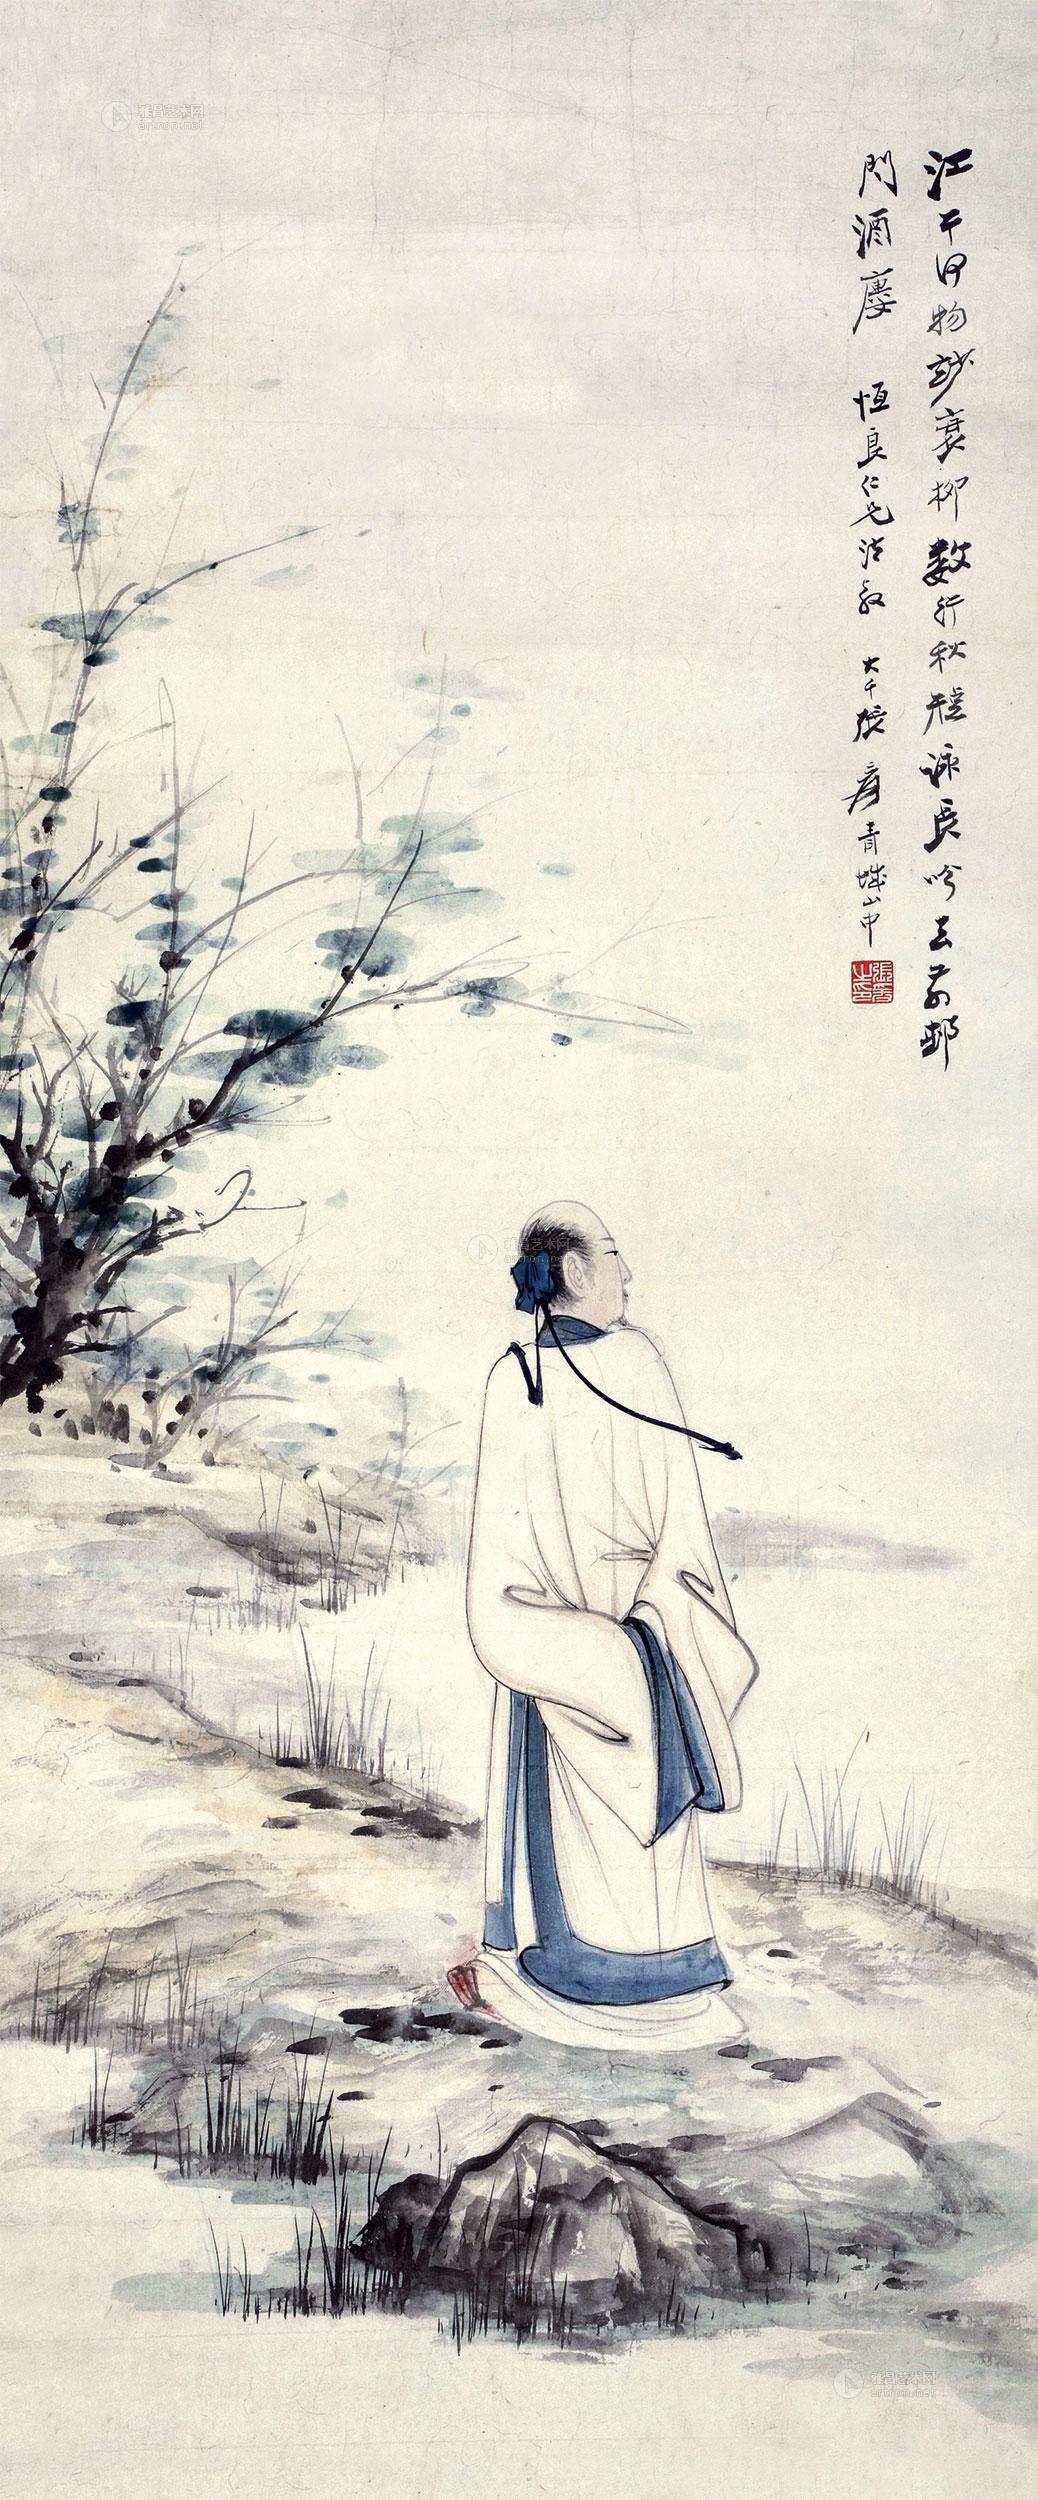 江干何物妙衰柳數行秋短詠長吟去前邨
問酒廔 恒良仁兄法教 大千張爰青城山中
張爰之印
雅昌艺术网
artron.net
雅昌艺术网
artron.net
雅昌艺术网
artron.net